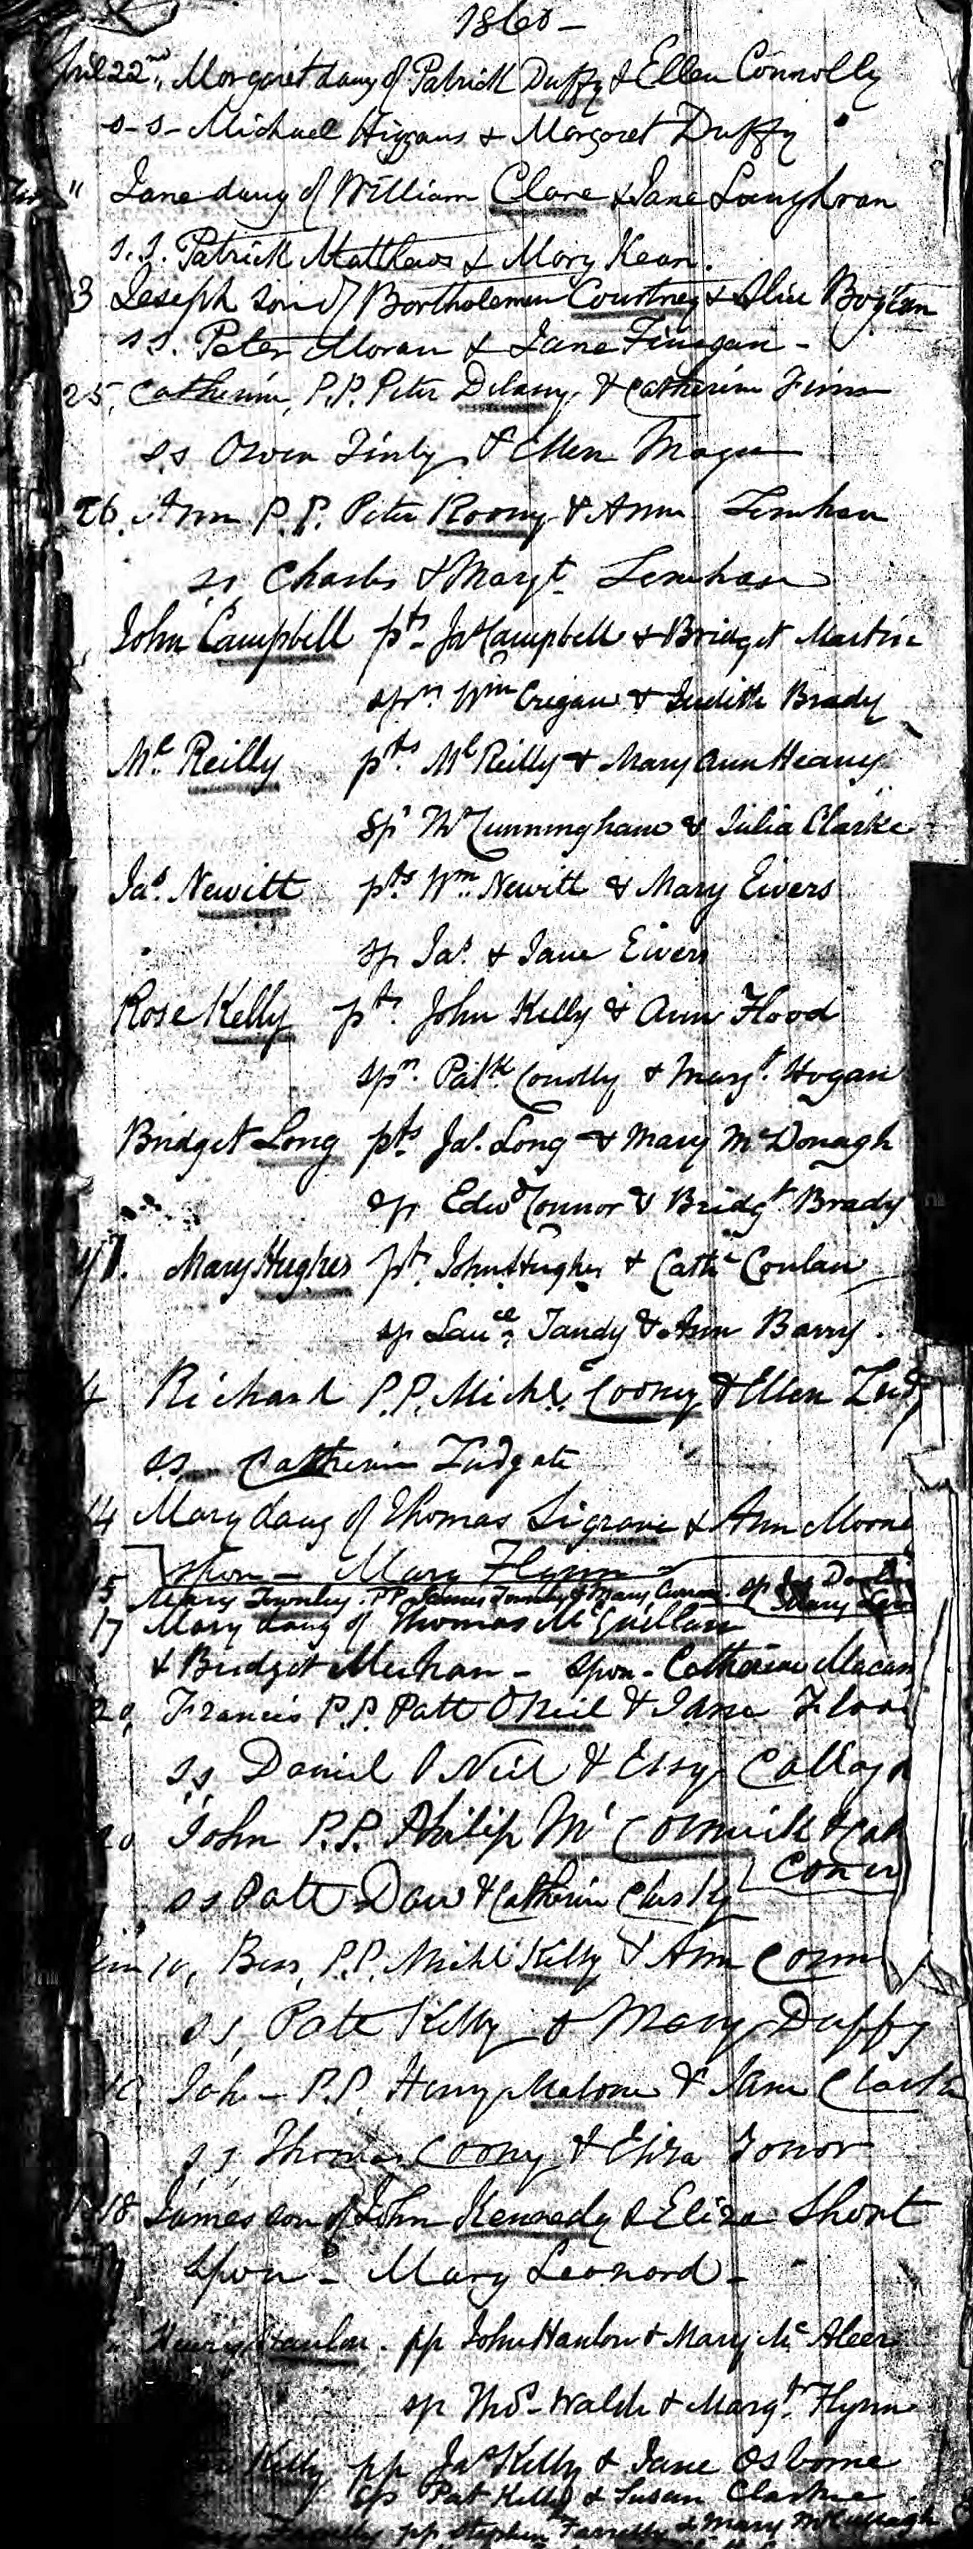 1860 -
22nd, Margaret daug of Patrick Duffy & Ellen Connolly
s-s- Michael Higgans & Margaret Duffy
" Jane daug of William Clare & Jane Loughran
s.s. Patrick Matthews & Mary Kean.
3 Joseph son of Bartholemew Courtney & Alice Boylan
s s. Peter Moran & Jane Finegan -
25, Catherine, P.P. Peter Delany, & Catherine Finn
s.s Owen Finly & Ellen Magu
26, Ann P.P. Peter Roony & Ann Lenihan
ss, Charles & Mary Lenihan
John Campbell pts Jas Campbell & Bridget Martin
spn Wm Cregan & Judith Brady
Ml Reilly pts Ml Reilly & Mary Ann Heany
Sp Cunningham & Julia Clarke
Jas Newitt pts Wm Newitt & Mary Eivers
sp Jas & Jane Eivers
Rose Kelly pts John Kelly & Ann Flood
spn. Patk Conolly & Margt. Hogan
Bridget Long pts Jas. Long & Mary McDonagh
sp Edwd Connor & Bridgt Brady
Mary Hughes pts John Hughes & Cathe Conlan
sp Lauce Tandy & Ann Barry.
4 Richard P.P. Michl. Coony & Ellen
ss Catherine Ludgate
14 Mary daug of Thomas Sigrave & Ann
spon - Mary Flynn
15 Mary Townley. PP James Townley & Mary sp
17 Mary daug of Thomas McQuillan
& Bridget Meehan - Spon - Catherine
20, Francis P.P. Patt ONeil & Jane
s,s, Daniel O Neil & Essy
20 John P.P. Philip McCormick &
ss Patt Daw & Catherine
10, Bess, P.P. Michl Kelly & Ann
ss, Patt Kelly & Mary Duffy
10, John - P.P. Henry Malone & Jane
s,s, Thomas Coony & Eliza Tonor
18 James son of John Kennedy & Eliza Short
Spon - Mary Leonard -
Henry Hanlon. pp John Hanlon & Mary McAleer
sp Thos Walsh & Margt Flynn
Kelly pp Jas Kelly & Jane Osborne
sp Pat Kelly & Susan Clarke
pp Stephen Farrelly & Mary McCullagh